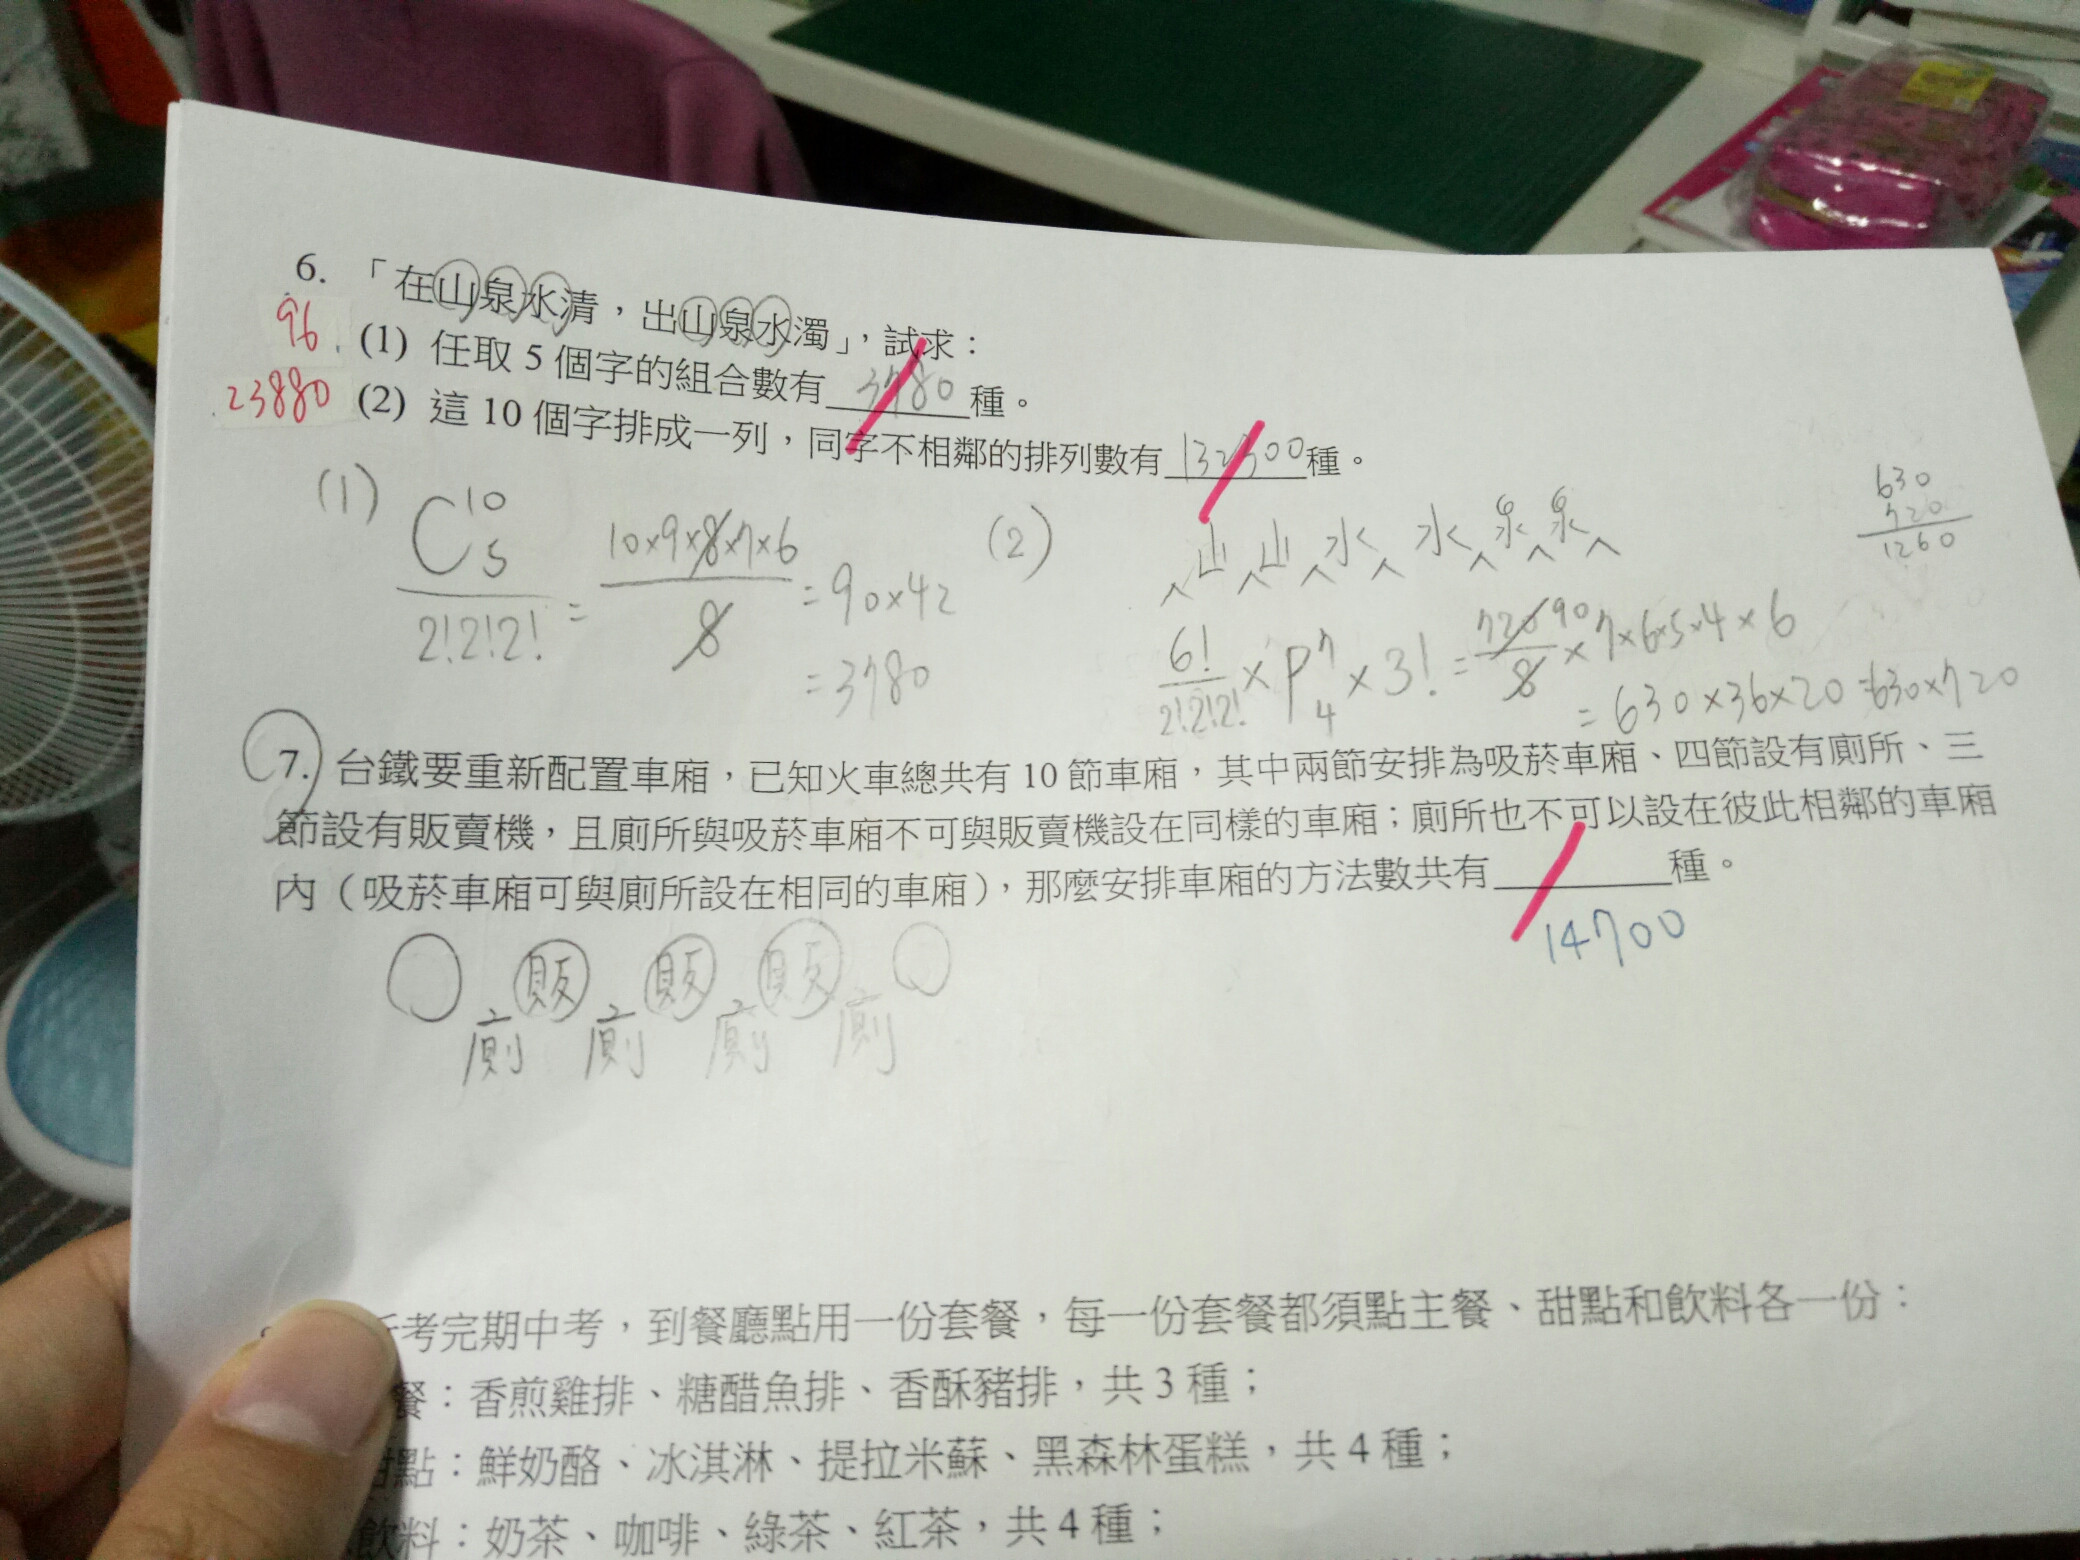 6. 「在山泉水清，出山泉水濁」，試求：
96 (1) 任取 5 個字的組合數有 3780 種。
23880 (2) 這 10 個字排成一列，同字不相鄰的排列數有 132300 種。
(1) C 10 5 / 2!2!2! = 10×9×8×7×6 / 8 = 90×42
= 3780
(2) 山 山 水 水 泉 泉
6! / 2!2!2! × P 7 4 × 3! = 720 90 / 8 × 7×6×5×4 × 6
= 630×36×20 = 630×720
630
720
1260
7. 台鐵要重新配置車廂，已知火車總共有 10 節車廂，其中兩節安排為吸菸車廂、四節設有廁所、三
節設有販賣機，且廁所與吸菸車廂不可與販賣機設在同樣的車廂；廁所也不可以設在彼此相鄰的車廂
內（吸菸車廂可與廁所設在相同的車廂），那麼安排車廂的方法數共有 種。
14700
販 販 販
廁 廁 廁 廁
考完期中考，到餐廳點用一份套餐，每一份套餐都須點主餐、甜點和飲料各一份：
餐：香煎雞排、糖醋魚排、香酥豬排，共 3 種；
甜點：鮮奶酪、冰淇淋、提拉米蘇、黑森林蛋糕，共 4 種；
飲料：奶茶、咖啡、綠茶、紅茶，共 4 種；